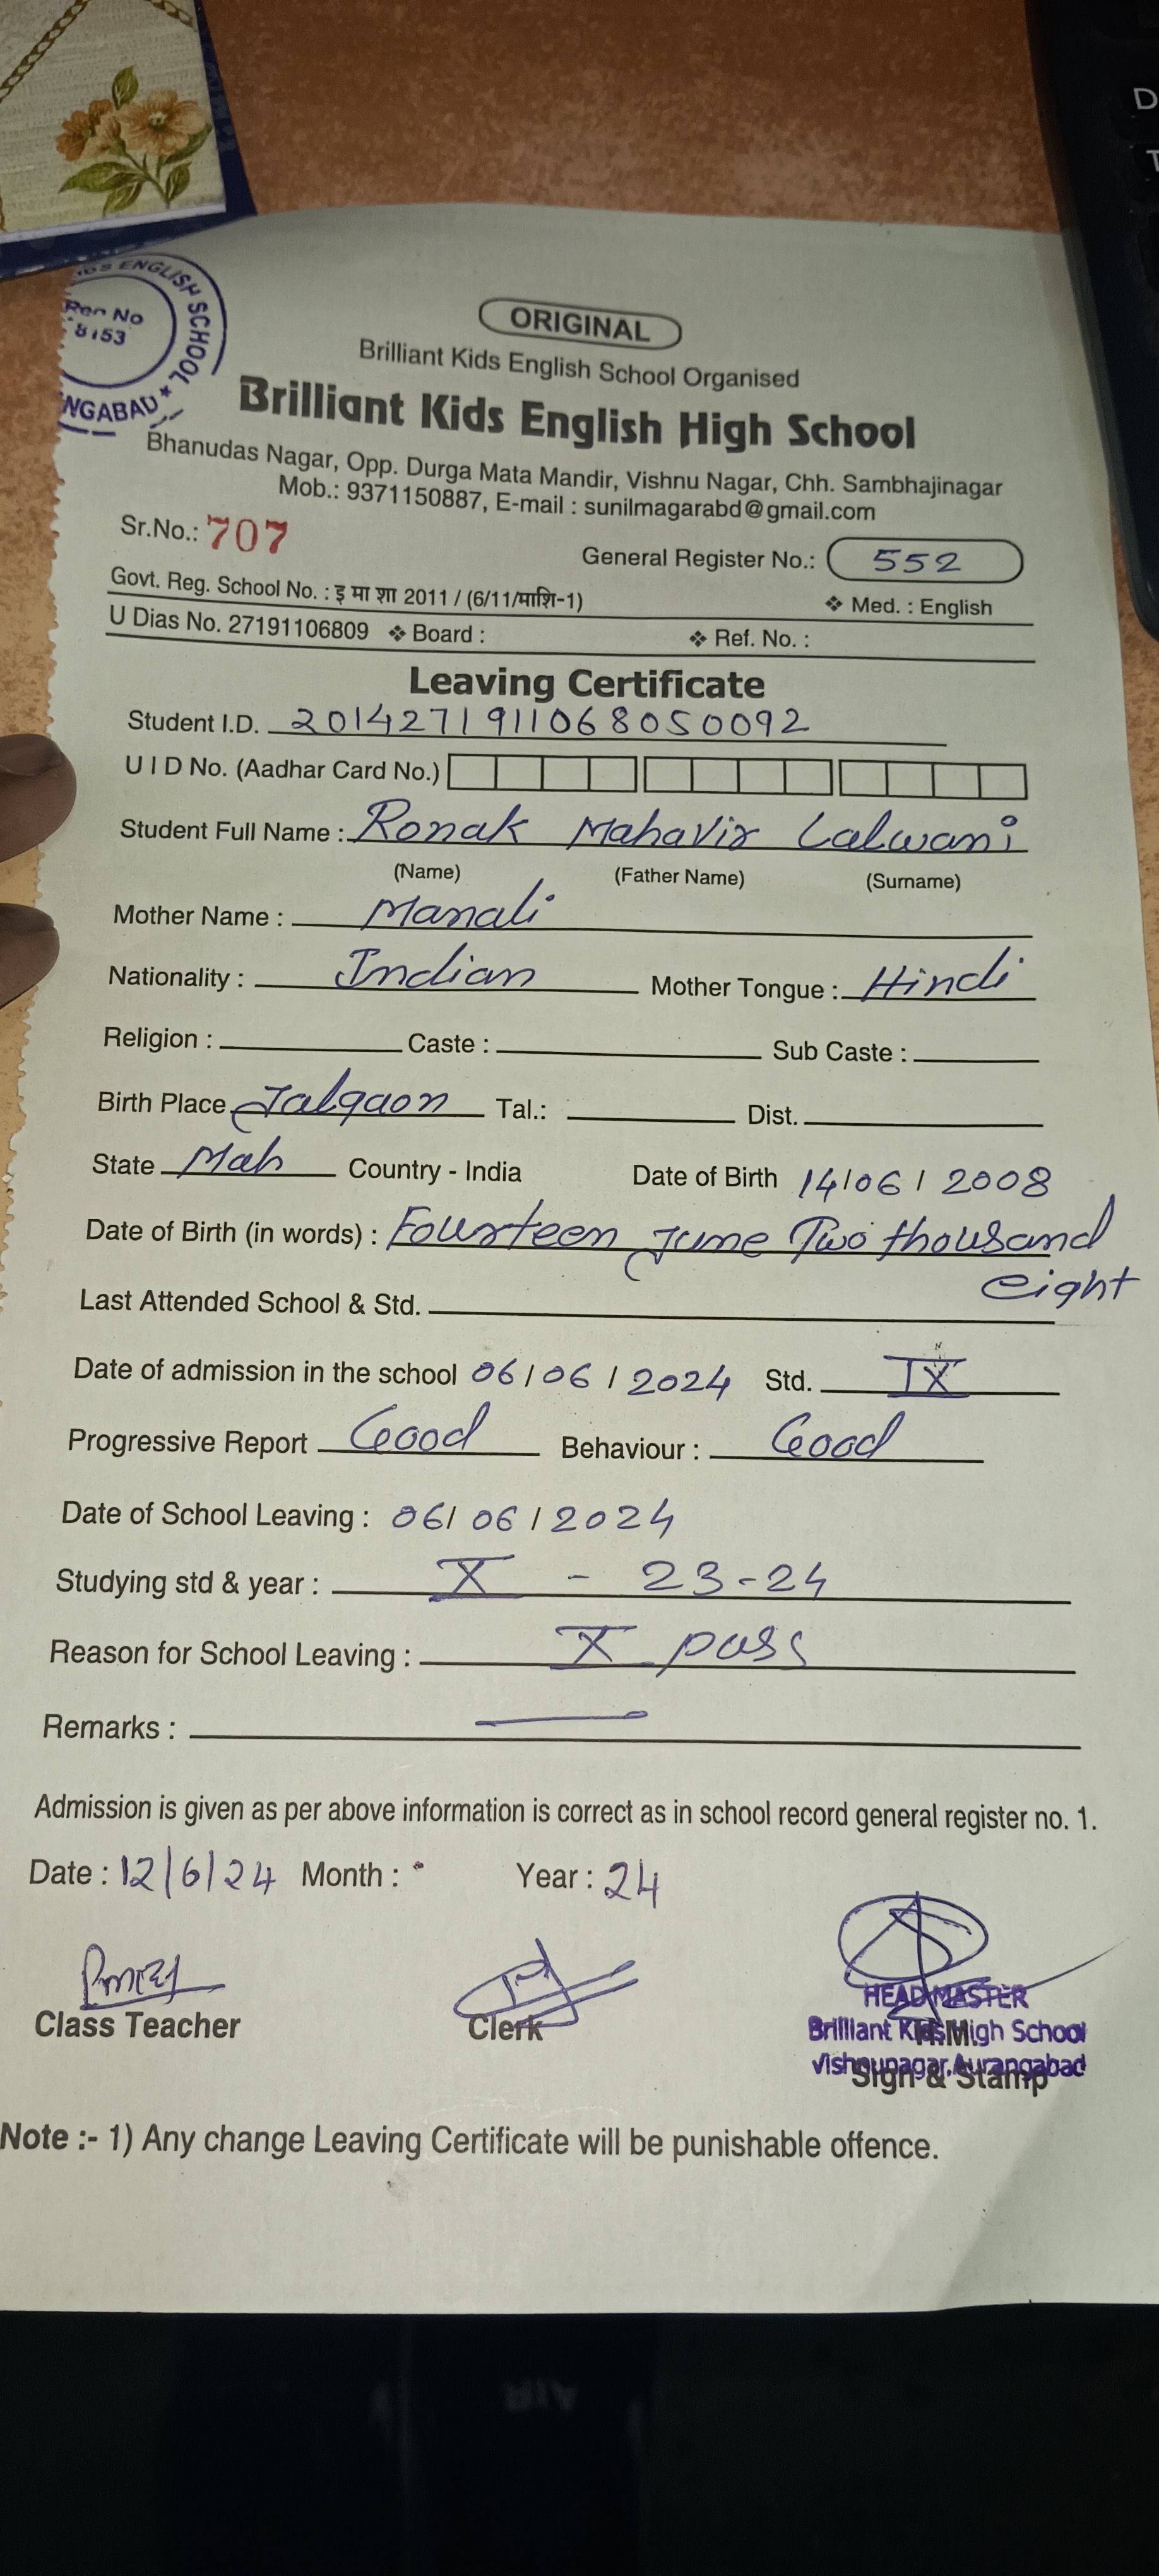 ENGLISH SCHOOL ★
Reg No
8153
NGABAD
ORIGINAL
Brilliant Kids English School Organised
Brilliant Kids English High School
Bhanudas Nagar, Opp. Durga Mata Mandir, Vishnu Nagar, Chh. Sambhajinagar
Mob.: 9371150887, E-mail : sunilmagarabd@gmail.com
Sr.No.: 707
General Register No.: 552
Govt. Reg. School No. : इ मा शा 2011 / (6/11/माशि-1) ❖ Med. : English
U Dias No. 27191106809 ❖ Board : ❖ Ref. No. :
Leaving Certificate
Student I.D. 2014271911068050092
U I D No. (Aadhar Card No.)
Student Full Name : Ronak Mahavir Lalwani
(Name) (Father Name) (Surname)
Mother Name : Manali
Nationality : Indian Mother Tongue : Hindi
Religion : Caste : Sub Caste :
Birth Place Jalgaon Tal.: Dist.
State Mah Country - India Date of Birth 14/06/2008
Date of Birth (in words) : Fourteen June Two thousand
eight
Last Attended School & Std.
Date of admission in the school 06/06/2024 Std. IX
Progressive Report Good Behaviour : Good
Date of School Leaving : 06/06/2024
Studying std & year : X - 23-24
Reason for School Leaving : X pass
Remarks : —
Admission is given as per above information is correct as in school record general register no. 1.
Date : 12/6/24 Month : Year : 24
Class Teacher
Clerk
HEAD MASTER
Brilliant Kids High School
H.M.
Vishnunagar, Aurangabad
Sign & Stamp
Note :- 1) Any change Leaving Certificate will be punishable offence.